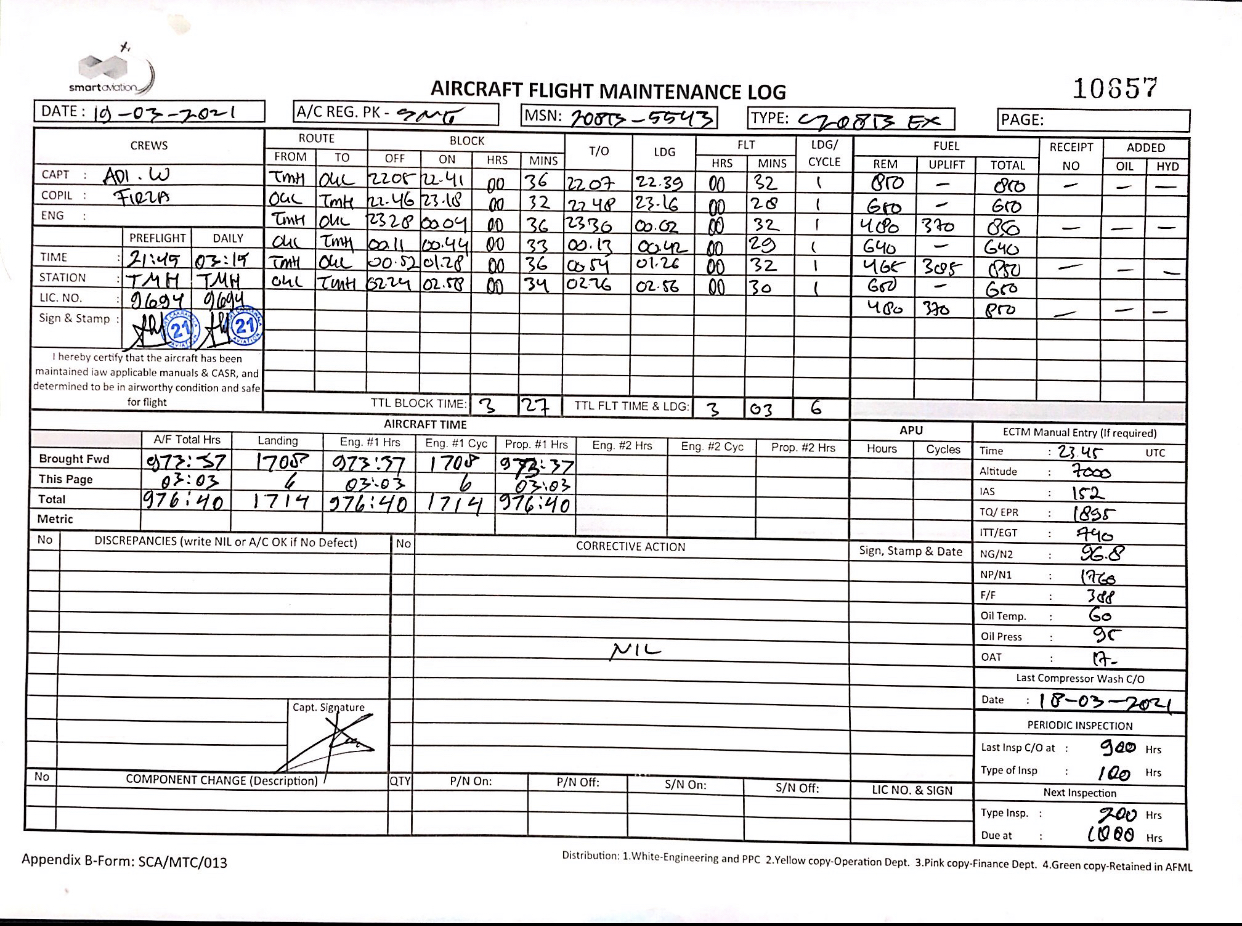 smartaviation
AIRCRAFT FLIGHT MAINTENANCE LOG
10657
DATE : 19-03-2021 A/C REG. PK - SNG MSN: 208B-5543 TYPE: C208B EX PAGE:
CREWS ROUTE BLOCK T/O LDG FLT LDG/ CYCLE FUEL RECEIPT NO ADDED
FROM TO OFF ON HRS MINS HRS MINS REM UPLIFT TOTAL OIL HYD
CAPT : ADI . W TMH OUL 2205 22.41 00 36 22 07 22.39 00 32 1 850 – 850 – – –
COPIL : OUL TMH 22.46 23.18 00 32 22 48 23.16 00 28 1 680 – 680
ENG : TMH OUL 2328 00.04 00 36 2330 00.02 00 32 1 480 370 850 – – –
OUL TMH 00.11 00.44 00 33 00.13 00.42 00 29 1 640 – 640
PREFLIGHT DAILY
TIME : 21:45 03:15 TMH OUL 00.52 01.28 00 36 0054 01.26 00 32 1 465 385 850 – – –
STATION : TMH TMH OUL TMH 0224 02.58 00 34 0226 02.56 00 30 1 680 – 680
LIC. NO. : 9694 9694 480 370 850 – – –
Sign & Stamp : 21 21
I hereby certify that the aircraft has been
maintained iaw applicable manuals & CASR, and
determined to be in airworthy condition and safe
for flight
TTL BLOCK TIME: 3 27 TTL FLT TIME & LDG: 3 03 6
AIRCRAFT TIME APU ECTM Manual Entry (If required)
A/F Total Hrs Landing Eng. #1 Hrs Eng. #1 Cyc Prop. #1 Hrs Eng. #2 Hrs Eng. #2 Cyc Prop. #2 Hrs Hours Cycles
Time : 23 45 UTC
Brought Fwd 973:37 1708 973:37 1708 973:37
Altitude : 7000
This Page 03:03 6 03:03 6 03:03
IAS : 152
Total 976:40 1714 976:40 1714 976:40
TQ/ EPR : 1895
Metric
ITT/EGT : 740
No DISCREPANCIES (write NIL or A/C OK if No Defect) No CORRECTIVE ACTION Sign, Stamp & Date
NG/N2 : 96.8
NP/N1 : 1760
F/F : 388
Oil Temp. : 60
Oil Press : 95
NIL
OAT : 17-
Last Compressor Wash C/O
Date : 18-03-2021
Capt. Signature
PERIODIC INSPECTION
Last Insp C/O at : 900 Hrs
Type of Insp : 100 Hrs
No COMPONENT CHANGE (Description) QTY P/N On: P/N Off: S/N On: S/N Off: LIC NO. & SIGN
Next Inspection
Type Insp. : 200 Hrs
Due at : 1000 Hrs
Appendix B-Form: SCA/MTC/013
Distribution: 1.White-Engineering and PPC 2.Yellow copy-Operation Dept. 3.Pink copy-Finance Dept. 4.Green copy-Retained in AFML